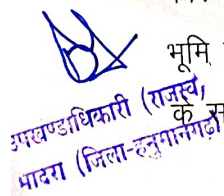 भूमि
उपखण्डाधिकारी (राजस्व,
के
भादरा (जिला-हनुमानगढ़)